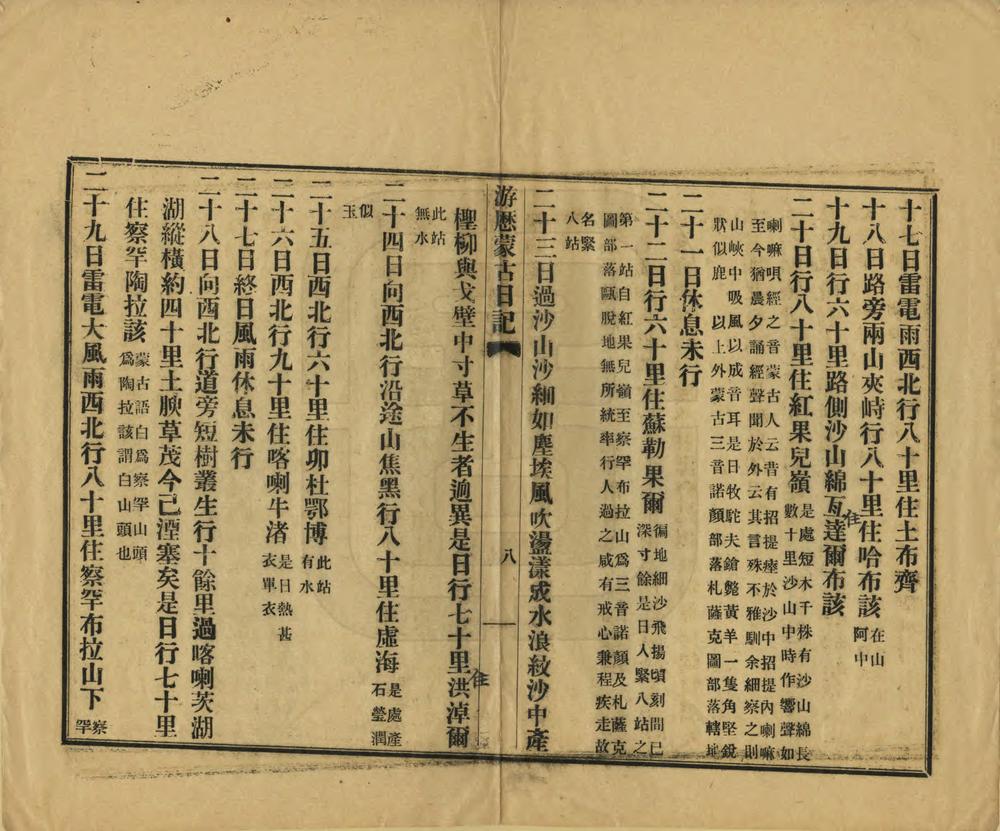 十七日雷電雨西北行八十里住土布齊
十八日路旁兩山夾峙行八十里住哈布該在山阿中
十九日行六十里路側沙山綿亙住達爾布該
二十日行八十里住紅果兒嶺是處短木千株有沙山綿長數十里沙山中時作響聲如
喇嘛唄經之音蒙古人云昔有招提瘞於沙中招提內喇嘛
至今猶晨夕誦經聲聞於外云其言殊不雅馴余細察之則
山峽中吸風以成音耳是日牧駝夫鎗斃黃羊一隻角堅銳
狀似鹿 以上外蒙古三音諾顏部落札薩克圖部落轄地
二十一日休息未行
二十二日行六十里住蘇勒果爾徧地細沙飛揚頃刻間已深寸餘是日入緊八站之
第一站自紅果兒嶺至察罕布拉山爲三音諾顏及札薩克
圖部落甌脫地無所統率行人過之咸有戒心兼程疾走故
名緊
八站
二十三日過沙山沙細如塵埃風吹盪漾成水浪紋沙中產
游歷蒙古日記
八
檉柳與戈壁中寸草不生者迥異是日行七十里住洪淖爾
此站
無水
二十四日向西北行沿途山焦黑行八十里住虛海是處產石瑩潤
似
玉
二十五日西北行六十里住卯杜鄂博此站有水
二十六日西北行九十里住喀喇牛渚是日熱甚衣單衣
二十七日終日風雨休息未行
二十八日向西北行道旁短樹叢生行十餘里過喀喇茨湖
湖縱橫約四十里土腴草茂今已湮塞矣是日行七十里
住察罕陶拉該蒙古語白爲察罕山頭爲陶拉該謂白山頭也
二十九日雷電大風雨西北行八十里住察罕布拉山下察罕